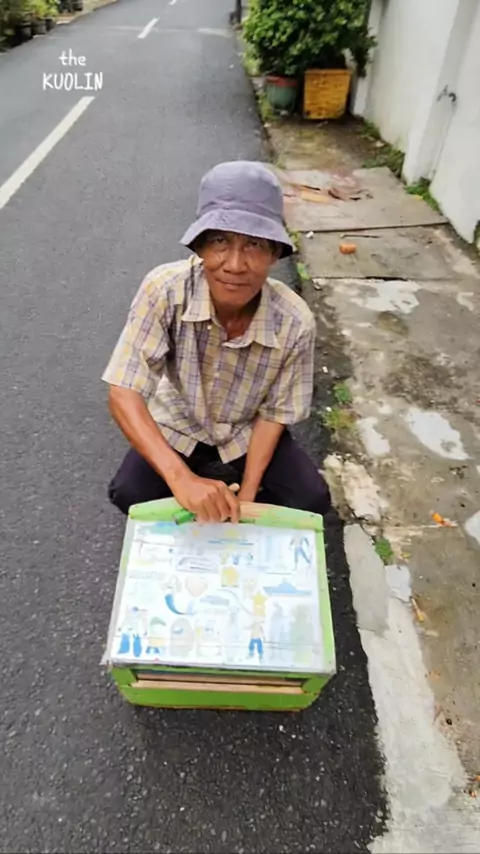 the
KUOLIN